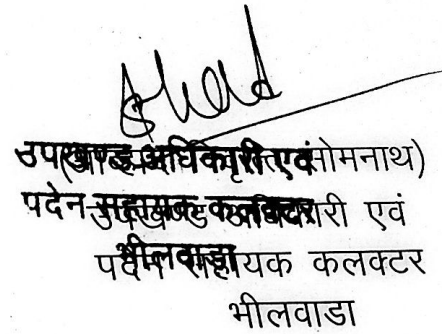 उपखण्ड अधिकारी एवं
पदेन सहायक कलक्टर
भीलवाड़ा
सोमनाथ)
उपखण्ड अधिकारी एवं
पदेन सहायक कलक्टर
भीलवाडा